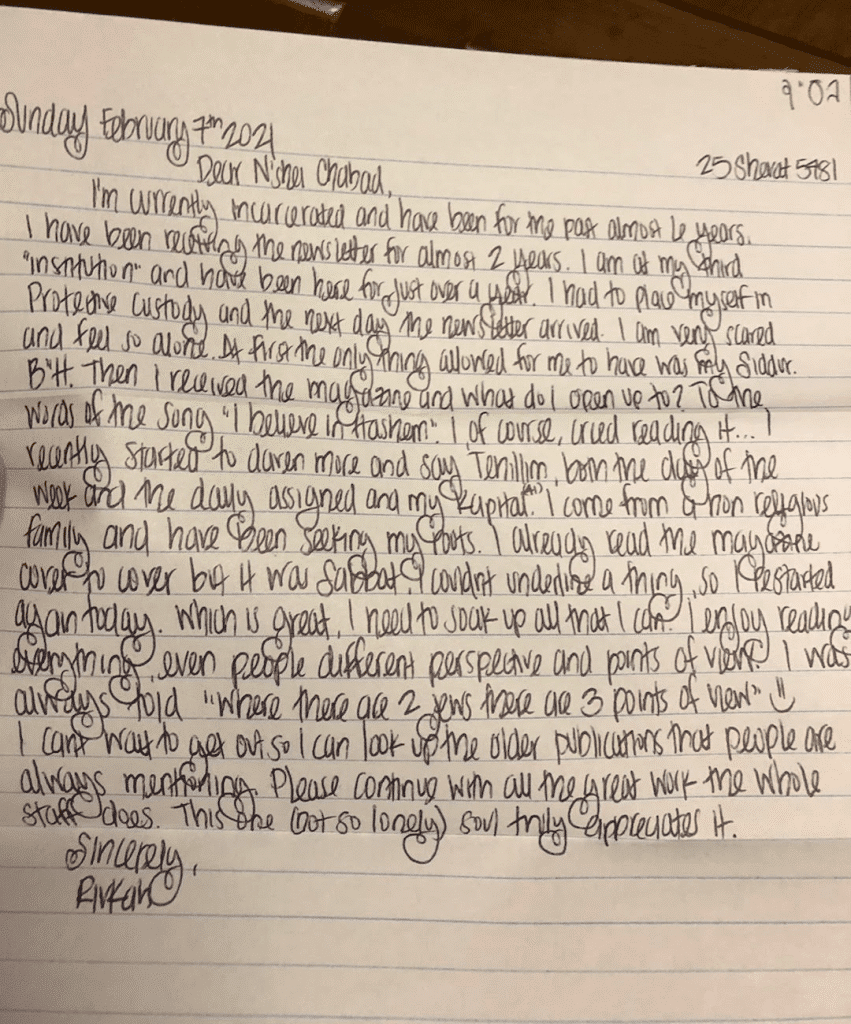 Sunday February 7th 2021
25 Shevat 5781
Dear N'shei Chabad,
I'm currently incarcerated and have been for the past almost 6 years.
I have been receiving the newsletter for almost 2 years. I am at my third
"insitution" and have been here for just over a year. I had to place myself in
Protective custody and the next day the newsletter arrived. I am very scared
and feel so alone. At first the only thing allowed for me to have was my Siddur.
B"H. Then I received the magazine and what do I open up to? To the
words of the song "I believe in Hashem". I of course, cried reading it... I
recently started to daven more and say Tehillim, both the day of the
week and the daily assigned and my Kapital. I come from a non religious
family and have been seeking my roots. I already read the magazine
cover to cover but it was Sabbat. I couldn't underline a thing, so I restarted
again today. Which is great, I need to soak up all that I can. I enjoy reading
everything, even people different perspective and points of view. I was
always told "where there are 2 jews there are 3 points of view"
I can't wait to get out so I can look up the older publications that people are
always mentioning. Please continue with all the great work the whole
staff does. This one (not so lonely) soul truly appreciates it.
Sincerely,
Rivkah